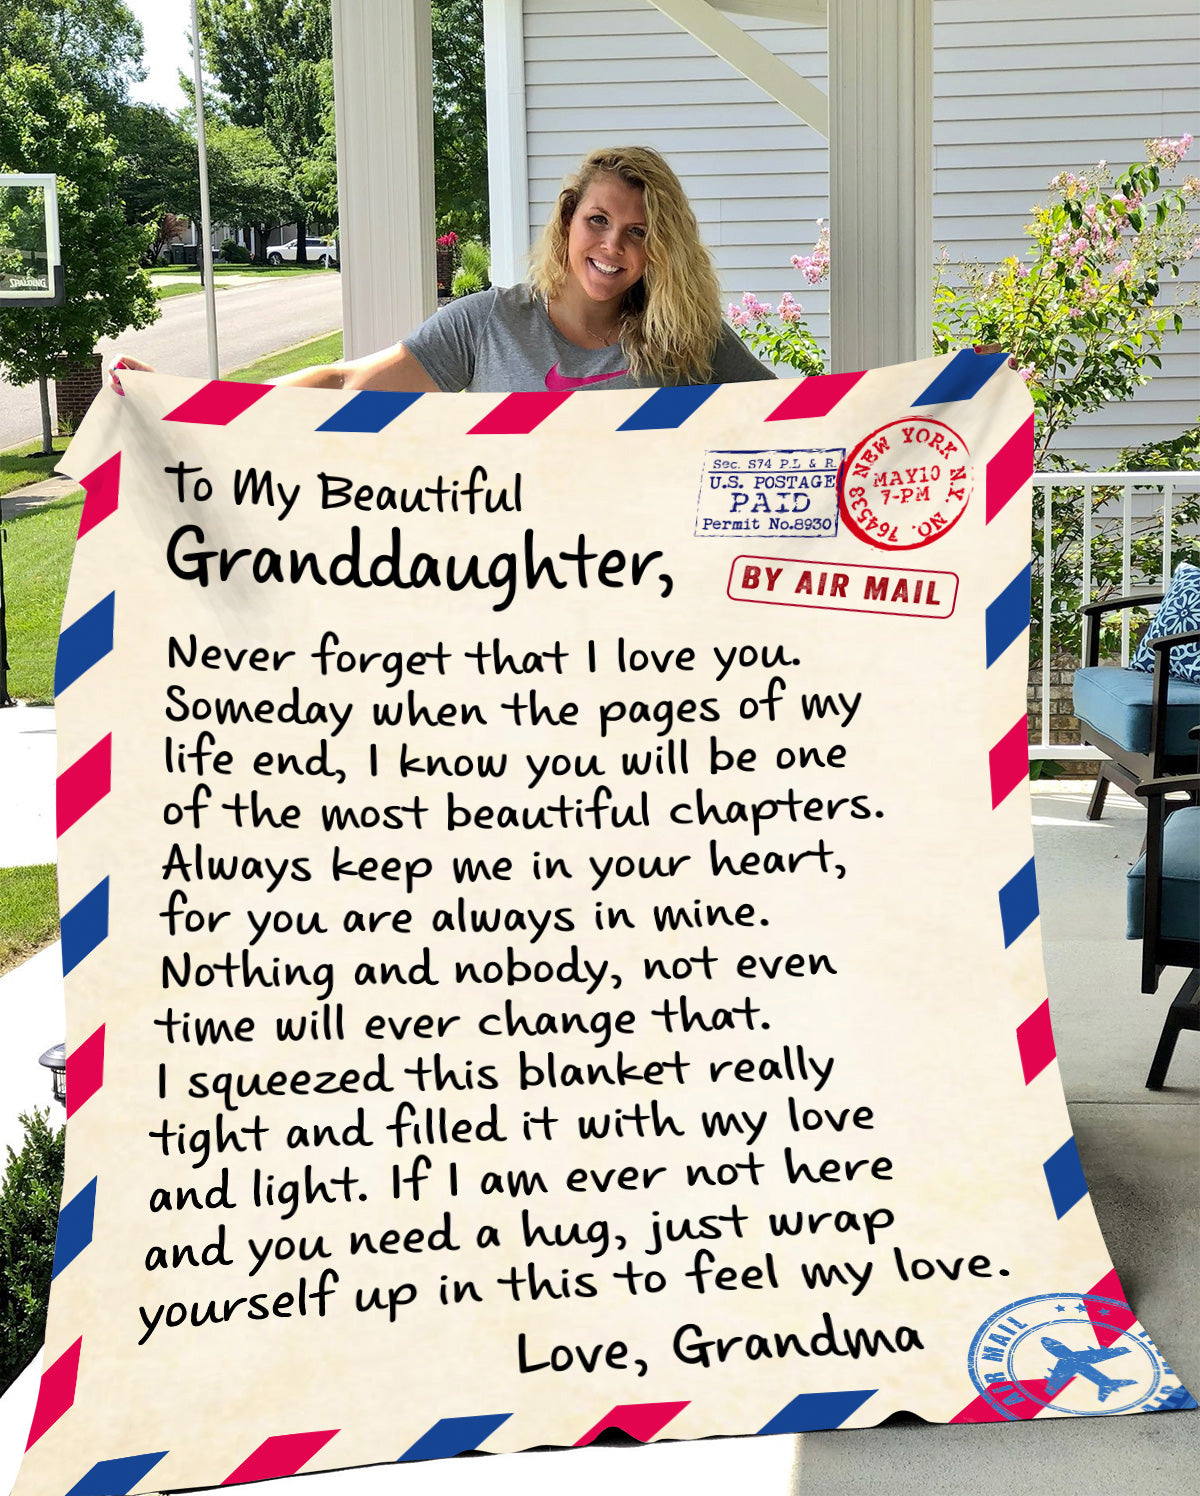 SPALDING
To My Beautiful
Granddaughter,
Sec. S74 P.L & R.
U.S. POSTAGE
PAID
Permit No.8930
NEW YORK N.Y.
MAY10
7-PM
NO. 764538
BY AIR MAIL
Never forget that I love you.
Someday when the pages of my
life end, I know you will be one
of the most beautiful chapters.
Always keep me in your heart,
for you are always in mine.
Nothing and nobody, not even
time will ever change that.
I squeezed this blanket really
tight and filled it with my love
and light. If I am ever not here
and you need a hug, just wrap
yourself up in this to feel my love.
Love, Grandma
AIR MAIL